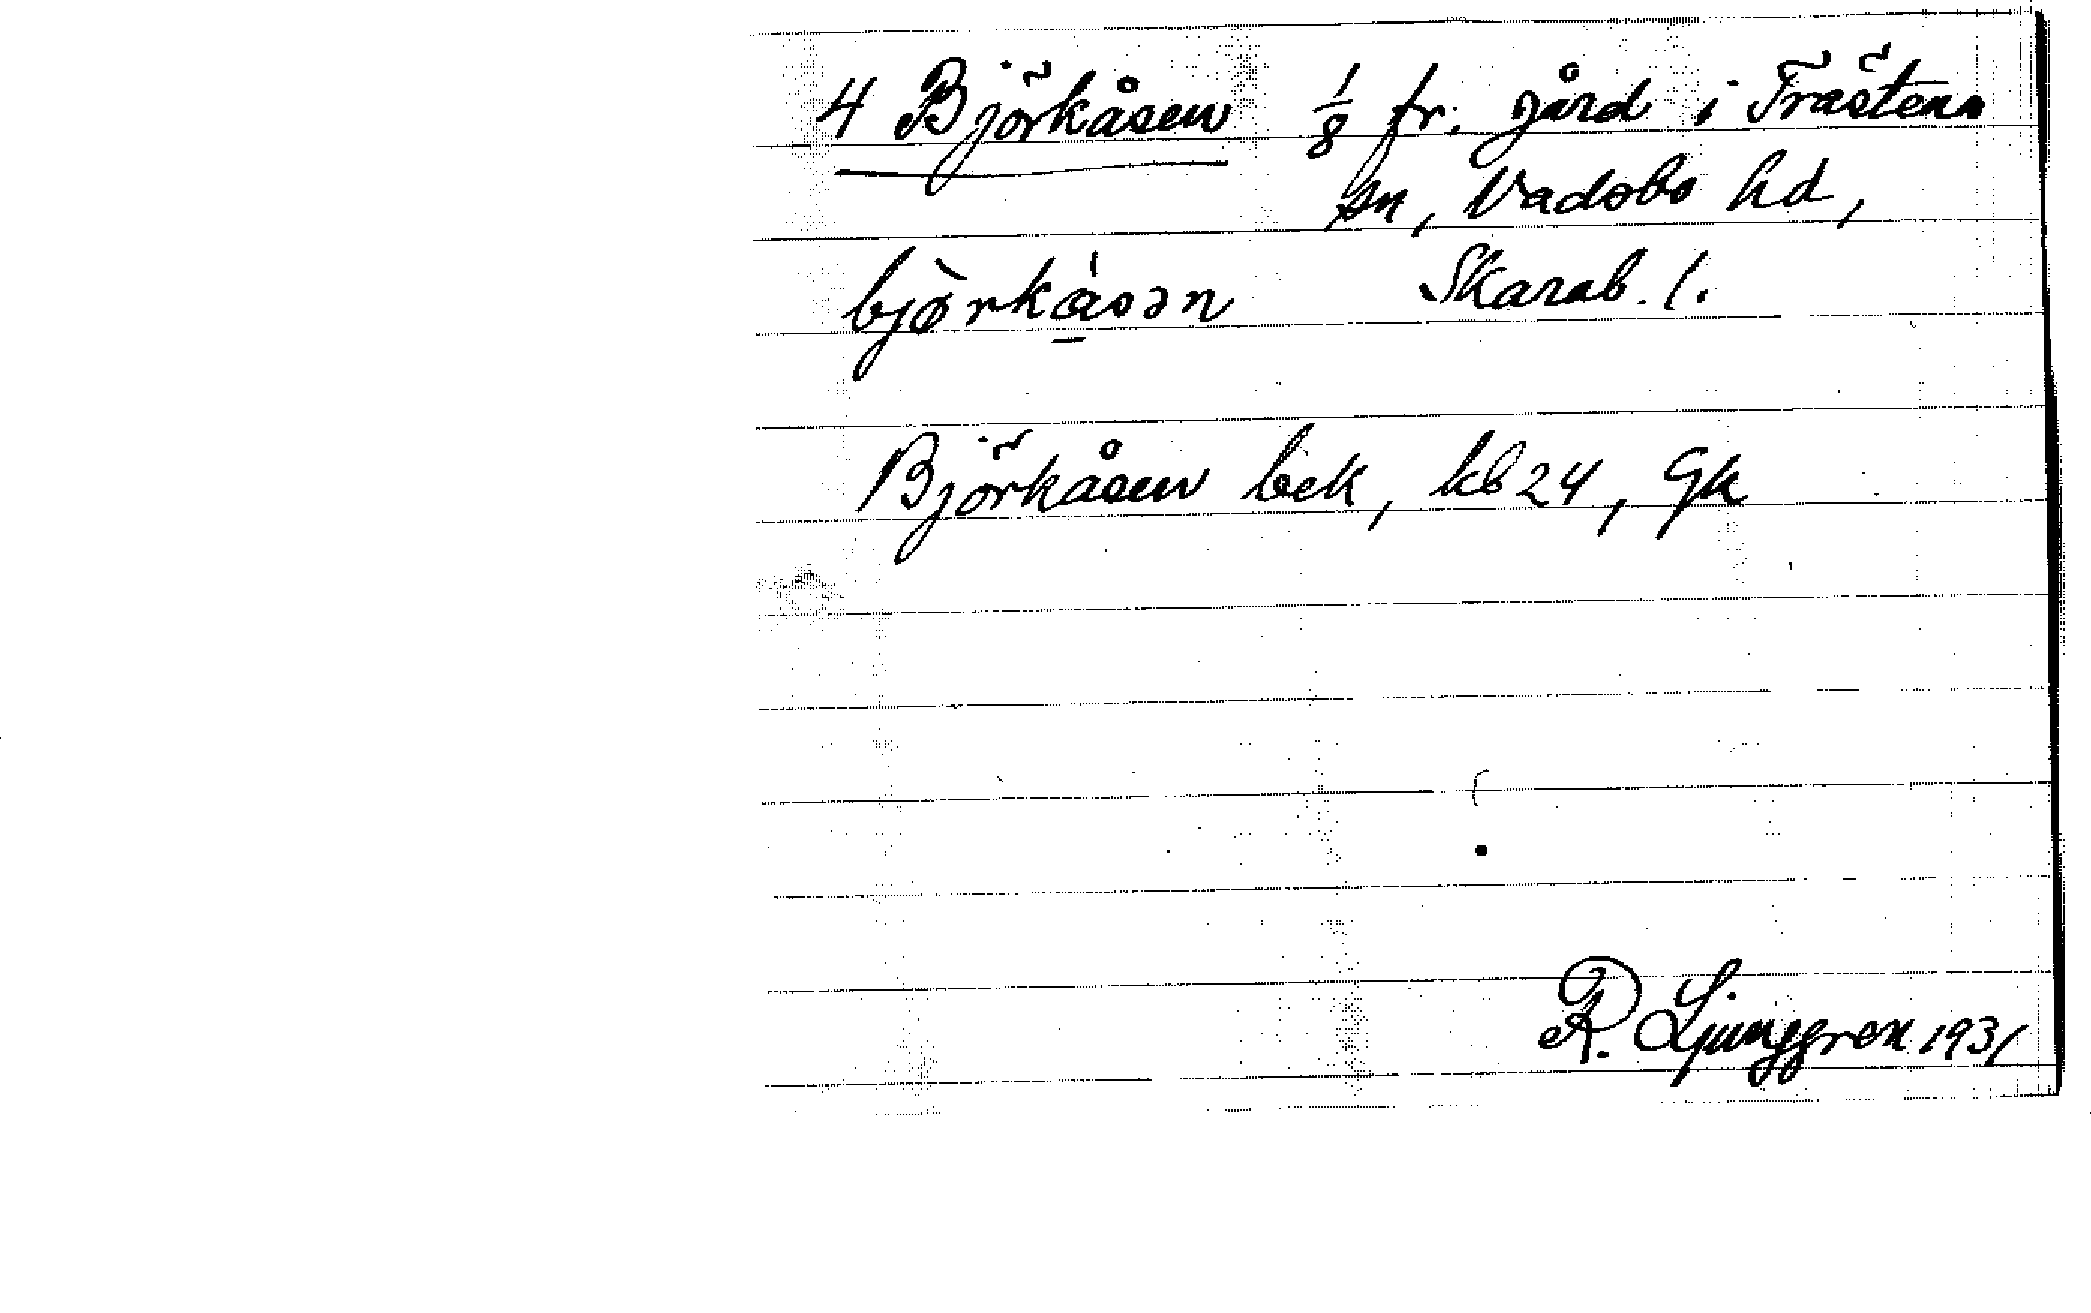 4 Björkåsen 1/8 fr. gård i Trästena
sn, Vadsbo hd,
björkåsən Skarab. l.
Björkåsen bek, kb 24, Gk
R. Ljunggren 1931